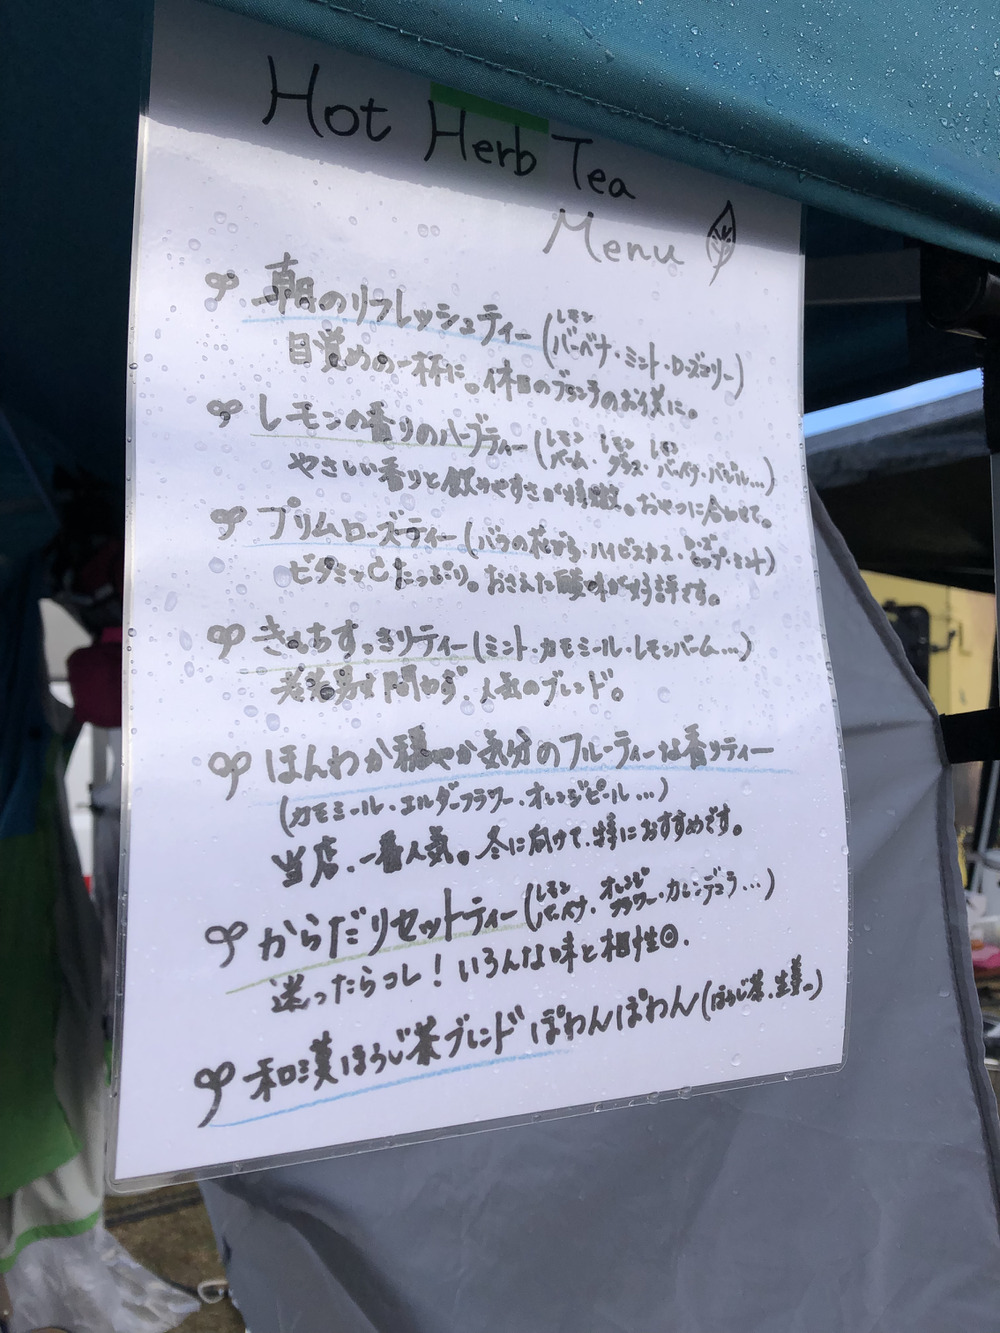 Hot Herb Tea
Menu
朝のリフレッシュティー(レモンバーベナ・ミント・ローズマリー)
目覚めの一杯に。休日のブランチのお供に。
レモンの香りのハーブティー(レモンバーム・レモングラス・レモンバーベナ・バジル…)
やさしい香りと飲みやすさが特徴。おやつに合わせて。
プリムローズティー(バラの花びら・ハイビスカス・ローズヒップ・ミント)
ビタミンCたっぷり。おさえた酸味が好評です。
きもちすっきりティー(ミント・カモミール・レモンバーム…)
老若男女問わず人気のブレンド。
ほんわか穏やか気分のフルーティーな香りティー
(カモミール・エルダーフラワー・オレンジピール…)
当店、一番人気。冬に向けて、特におすすめです。
からだリセットティー(レモンバーベナ・オレンジフラワー・カレンデュラ…)
迷ったらコレ!いろんな味と相性◎.
和漢ほうじ茶ブレンド ぽわんぽわん(ほうじ茶・生姜。)